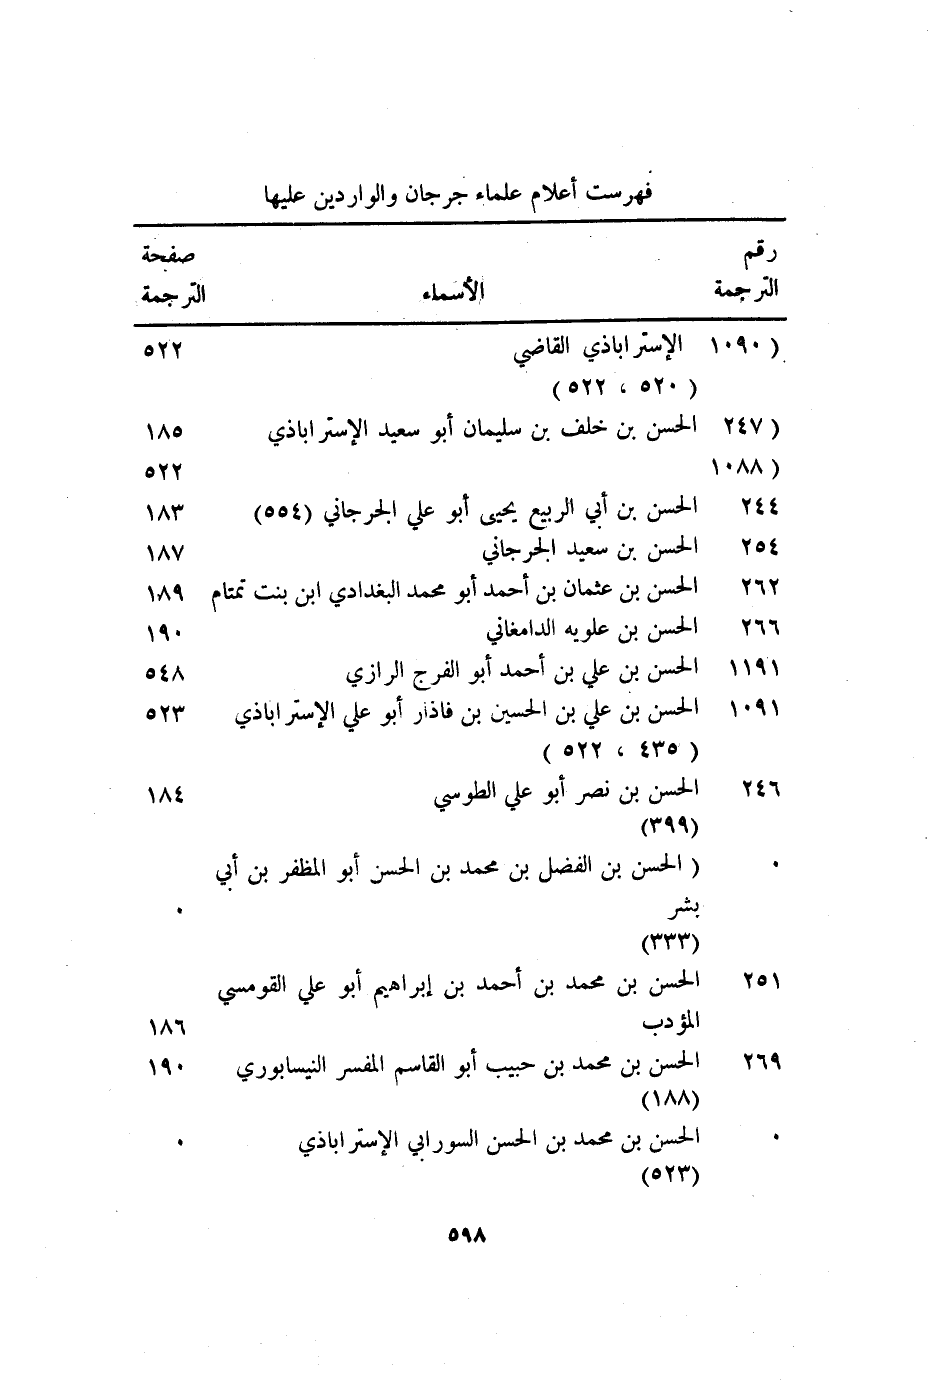 فهرست أعلام علماء جرجان والواردين عليها
رقم صفحة
الترجمة الأسماء الترجمة
( ١٠٩٠ الإستراباذي القاضي ٥٢٢
( ٥٢٠ ، ٥٢٢ )
( ٢٤٧ الحسن بن خلف بن سليمان أبو سعيد الإستراباذي ١٨٥
( ١٠٨٨ ٥٢٢
٢٤٤ الحسن بن أبي الربيع يحيى أبو علي الجرجاني (٥٥٤) ١٨٣
٢٥٤ الحسن بن سعيد الجرجاني ١٨٧
٢٦٢ الحسن بن عثمان بن أحمد أبو محمد البغدادي ابن بنت تمتام ١٨٩
٢٦٦ الحسن بن علويه الدامغاني ١٩٠
١١٩١ الحسن بن علي بن أحمد أبو الفرج الرازي ٥٤٨
١٠٩١ الحسن بن علي بن الحسين بن فاذار أبو علي الإستراباذي ٥٢٣
( ٤٣٥ ، ٥٢٢ )
٢٤٦ الحسن بن نصر أبو علي الطوسي ١٨٤
(٣٩٩)
٠ ( الحسن بن الفضل بن محمد بن الحسن أبو المظفر بن أبي
بشر ٠
(٣٣٣)
٢٥١ الحسن بن محمد بن أحمد بن إبراهيم أبو علي القومسي
المؤدب ١٨٦
٢٦٩ الحسن بن محمد بن حبيب أبو القاسم المفسر النيسابوري ١٩٠
(١٨٨)
٠ الحسن بن محمد بن الحسن السورابي الإستراباذي ٠
(٥٢٣)
٥٩٨